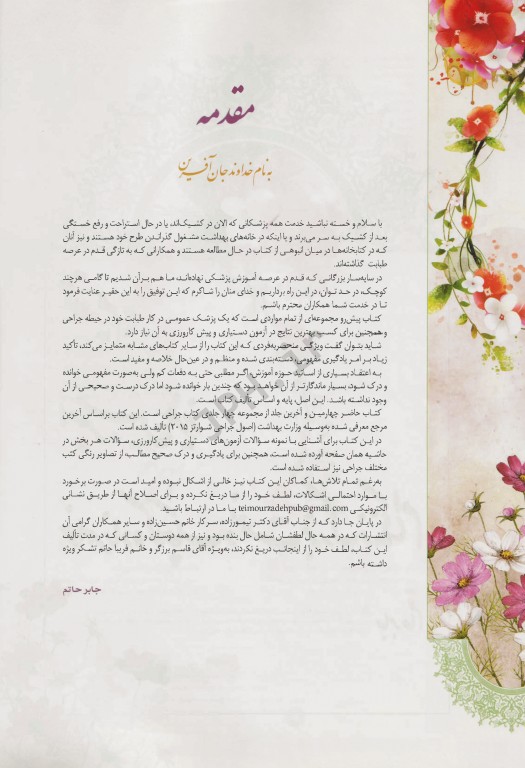 مقدمه
به نام خداوند جان آفرین
با سلام و خسته نباشید خدمت همه پزشکانی که الان در کشیک‌اند، یا در حال استراحت و رفع خستگی
بعد از کشیک به سر می‌برند و یا اینکه در خانه‌های بهداشت مشغول گذراندن طرح خود هستند و نیز آنان
که در کتابخانه‌ها در میان انبوهی از کتاب در حال مطالعه هستند و همکارانی که به تازگی قدم در عرصه
طبابت گذاشته‌اند.
در سایه‌سار بزرگانی که قدم در عرصه آموزش پزشکی نهاده‌اند، ما هم بر آن شدیم تا گامی هرچند
کوچک، در حد توان، در این راه برداریم و خدای منان را شاکرم که این توفیق را به این حقیر عنایت فرمود
تا در خدمت شما همکاران محترم باشیم.
کتاب پیش‌رو مجموعه‌ای از تمام مواردی است که یک پزشک عمومی در کار طبابت خود در حیطه جراحی
و همچنین برای کسب بهترین نتایج در آزمون دستیاری و پیش کارورزی به آن نیاز دارد.
شاید بتوان گفت ویژگی منحصربه‌فردی که این کتاب را از سایر کتاب‌های مشابه متمایز می‌کند، تأکید
زیاد بر امر یادگیری مفهومی، دسته‌بندی شده و منظم و در عین‌حال خلاصه و مفید است.
به اعتقاد بسیاری از اساتید حوزه آموزش، اگر مطلبی حتی به دفعات کم ولی به‌صورت مفهومی خوانده
و درک شود، بسیار ماندگارتر از آن خواهد بود که چندین بار خوانده شود اما درک درست و صحیحی از آن
وجود نداشته باشد. این اصل، پایه و اساس تألیف کتاب است.
کتاب حاضر چهارمین و آخرین جلد از مجموعه چهار جلدی کتاب جراحی است. این کتاب براساس آخرین
مرجع معرفی شده به‌وسیله وزارت بهداشت (اصول جراحی شوارتز ۲۰۱۵) تألیف شده است.
در این کتاب برای آشنایی با نمونه سؤالات آزمون‌های دستیاری و پیش‌کارورزی، سؤالات هر بخش در
حاشیه همان صفحه آورده شده است. همچنین برای یادگیری و درک صحیح مطالب از تصاویر رنگی کتب
مختلف جراحی نیز استفاده شده است.
به‌رغم تمام تلاش‌ها، کماکان این کتاب نیز خالی از اشکال نبوده و امید است در صورت برخورد
با موارد احتمالی اشکالات، لطف خود را از ما دریغ نکرده و برای اصلاح آنها از طریق نشانی
الکترونیکی teimourzadehpub@gmail.com با ما در ارتباط باشید.
در پایان جا دارد که از جناب آقای دکتر تیمورزاده، سرکار خانم حسین‌زاده و سایر همکاران گرامی آن
انتشارات که در همه حال لطفشان شامل حال بنده بود و نیز از همه دوستان و کسانی که در مدت تألیف
این کتاب، لطف خود را از اینجانب دریغ نکردند، به‌ویژه آقای قاسم برزگر و خانم فریبا حاتم تشکر ویژه
داشته باشم.
جابر حاتم